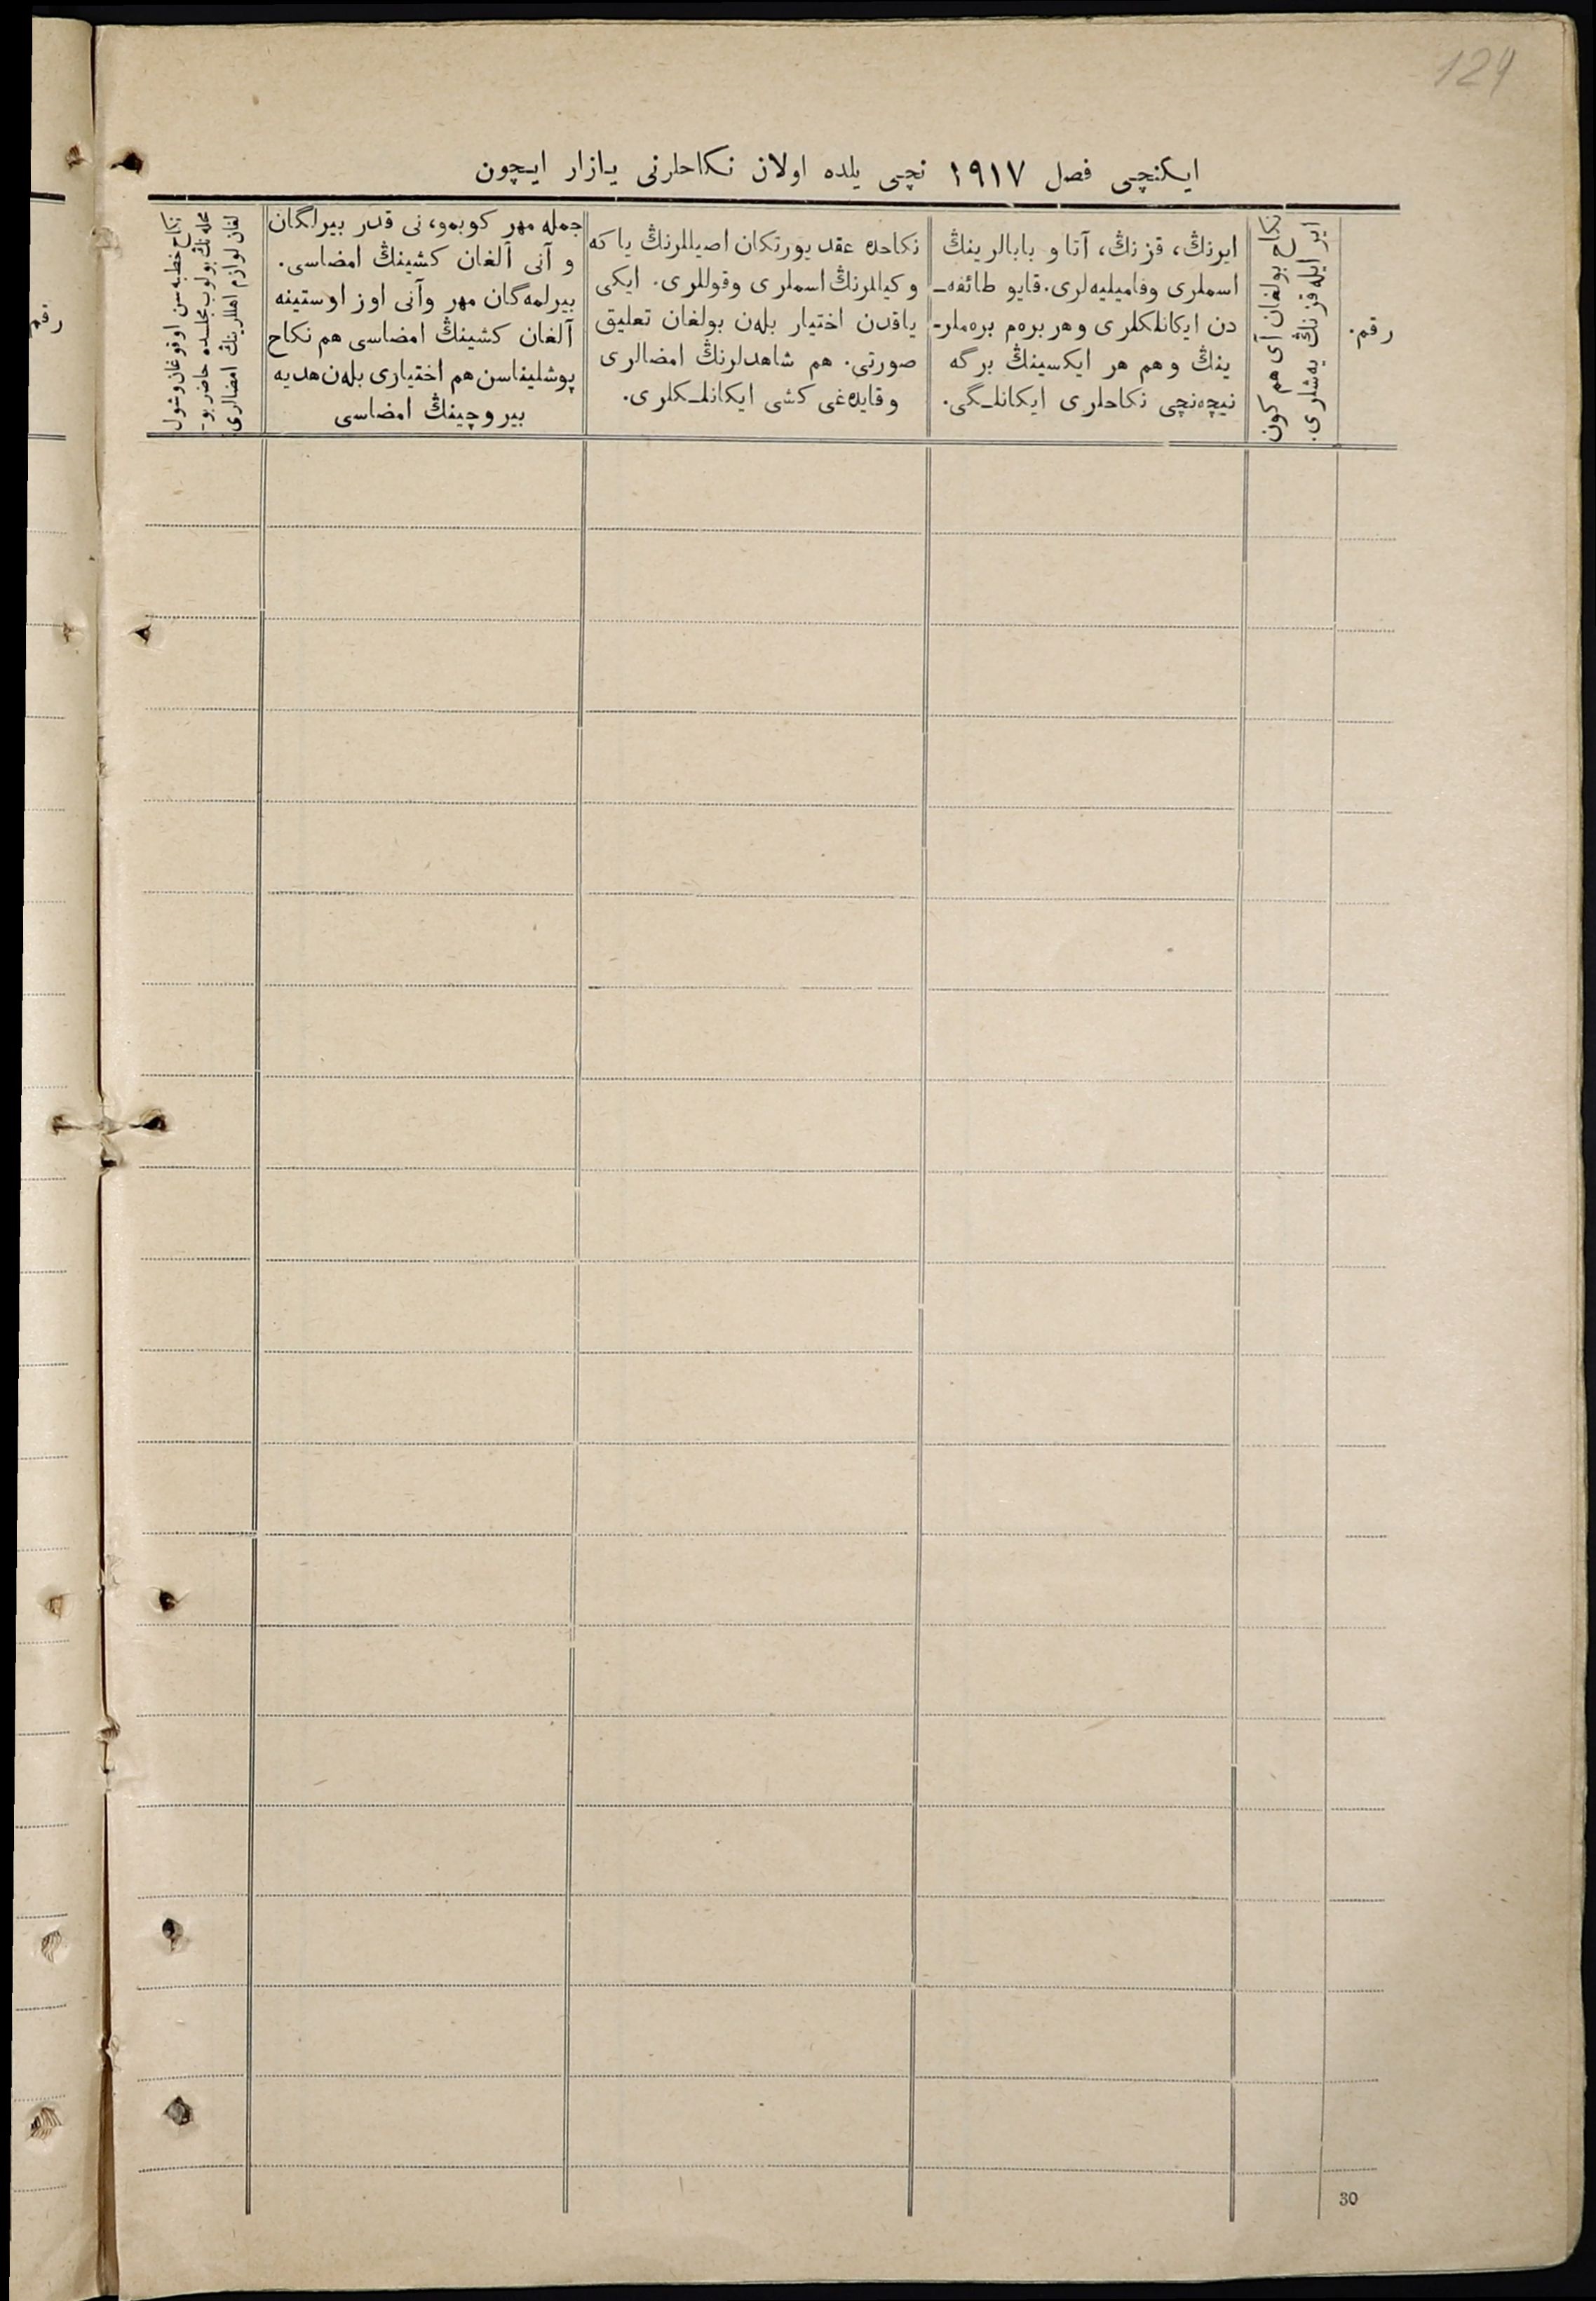 129
ایکنچی فصل ۱۹۱۷ نچی یلده اولان نکاحلرنی یازار ایچون
رقم.
نکاح بولغان آی هم کون
ایر ایله قزنڭ یه‌شلری.
ایرنڭ، قزنڭ، آتا و بابالرینڭ
اسملری وفامیلیه‌لری. قایو طائفه‌ـ
دن ایکانلکلری و هر بره‌م بره‌ملر-
ینڭ و هم هر ایکسینڭ برگه
نیچه‌نچی نکاحلری ایکانلـگی.
نکاحده عقد یورتکان اصیللرنڭ یا که
وکیللرنڭ اسملری وقوللری. ایکی
یاقدن اختیار بله‌ن بولغان تعلیق
صورتی. هم شاهدلرنڭ امضالری
و قایده‌غی کشی ایکانلـکلری.
جمله مهر کوبمو، نی قدر بیرلگان
و آنی آلغان کشینڭ امضاسی.
بیرلمه‌گان مهر وآنی اوز اوستینه
آلغان کشینڭ امضاسی هم نکاح
پوشلیناسن هم اختیاری بله‌ن هدیه
بیروچینڭ امضاسی
نکاح خطبه‌سن اوقوغان وشول
محله‌نڭ بولوب مجلسده حاضر بو-
لغان لوازم اهللرینڭ امضالری
رقم
30